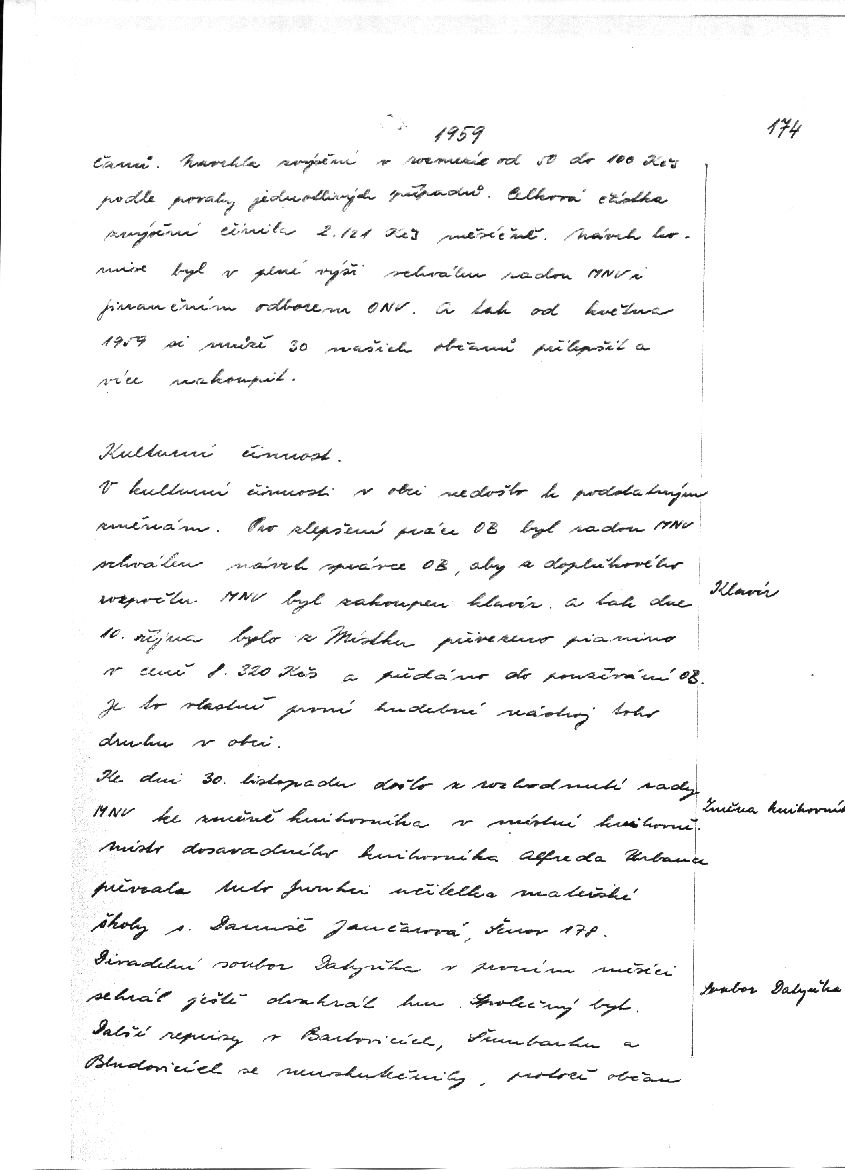 1959
174
čanů. Navrhla zvýšení v rozmezí od 50 do 100 Kčs
podle povahy jednotlivých případů. Celková částka
zvýšení činila 2.121 Kčs měsíčně. Návrh ko-
mise byl v plné výši schválen radou MNV i
finančním odborem ONV. A tak od května
1959 si může 30 našich občanů přilepšit a
více nakoupit.
Kulturní činnost.
V kulturní činnosti v obci nedošlo k podstatným
změnám. Pro zlepšení práce OB byl radou MNV
schválen návrh správce OB, aby z doplňkového
rozpočtu MNV byl zakoupen klavír. A tak dne
Klavír
10. října bylo z Místku přivezeno pianino
v ceně 8.320 Kčs a předáno do používání OB.
Je to vlastně první hudební nástroj toho
druhu v obci.
Ke dni 30. listopadu došlo z rozhodnutí rady
MNV ke změně knihovníka v místní knihovně.
Změna knihovník
Místo dosavadního knihovníka Alfreda Urbance
převzala tuto funkci učitelka mateřské
školy s. Danuše Jančarová, Šenov 178.
Divadelní soubor Datyňka v prvním měsíci
Soubor Datyňka
sehrál ještě dvakrát hru Společný byt.
Další reprízy v Bartovicích, Šumbarku a
Bludovicích se neuskutečnily, protože občan